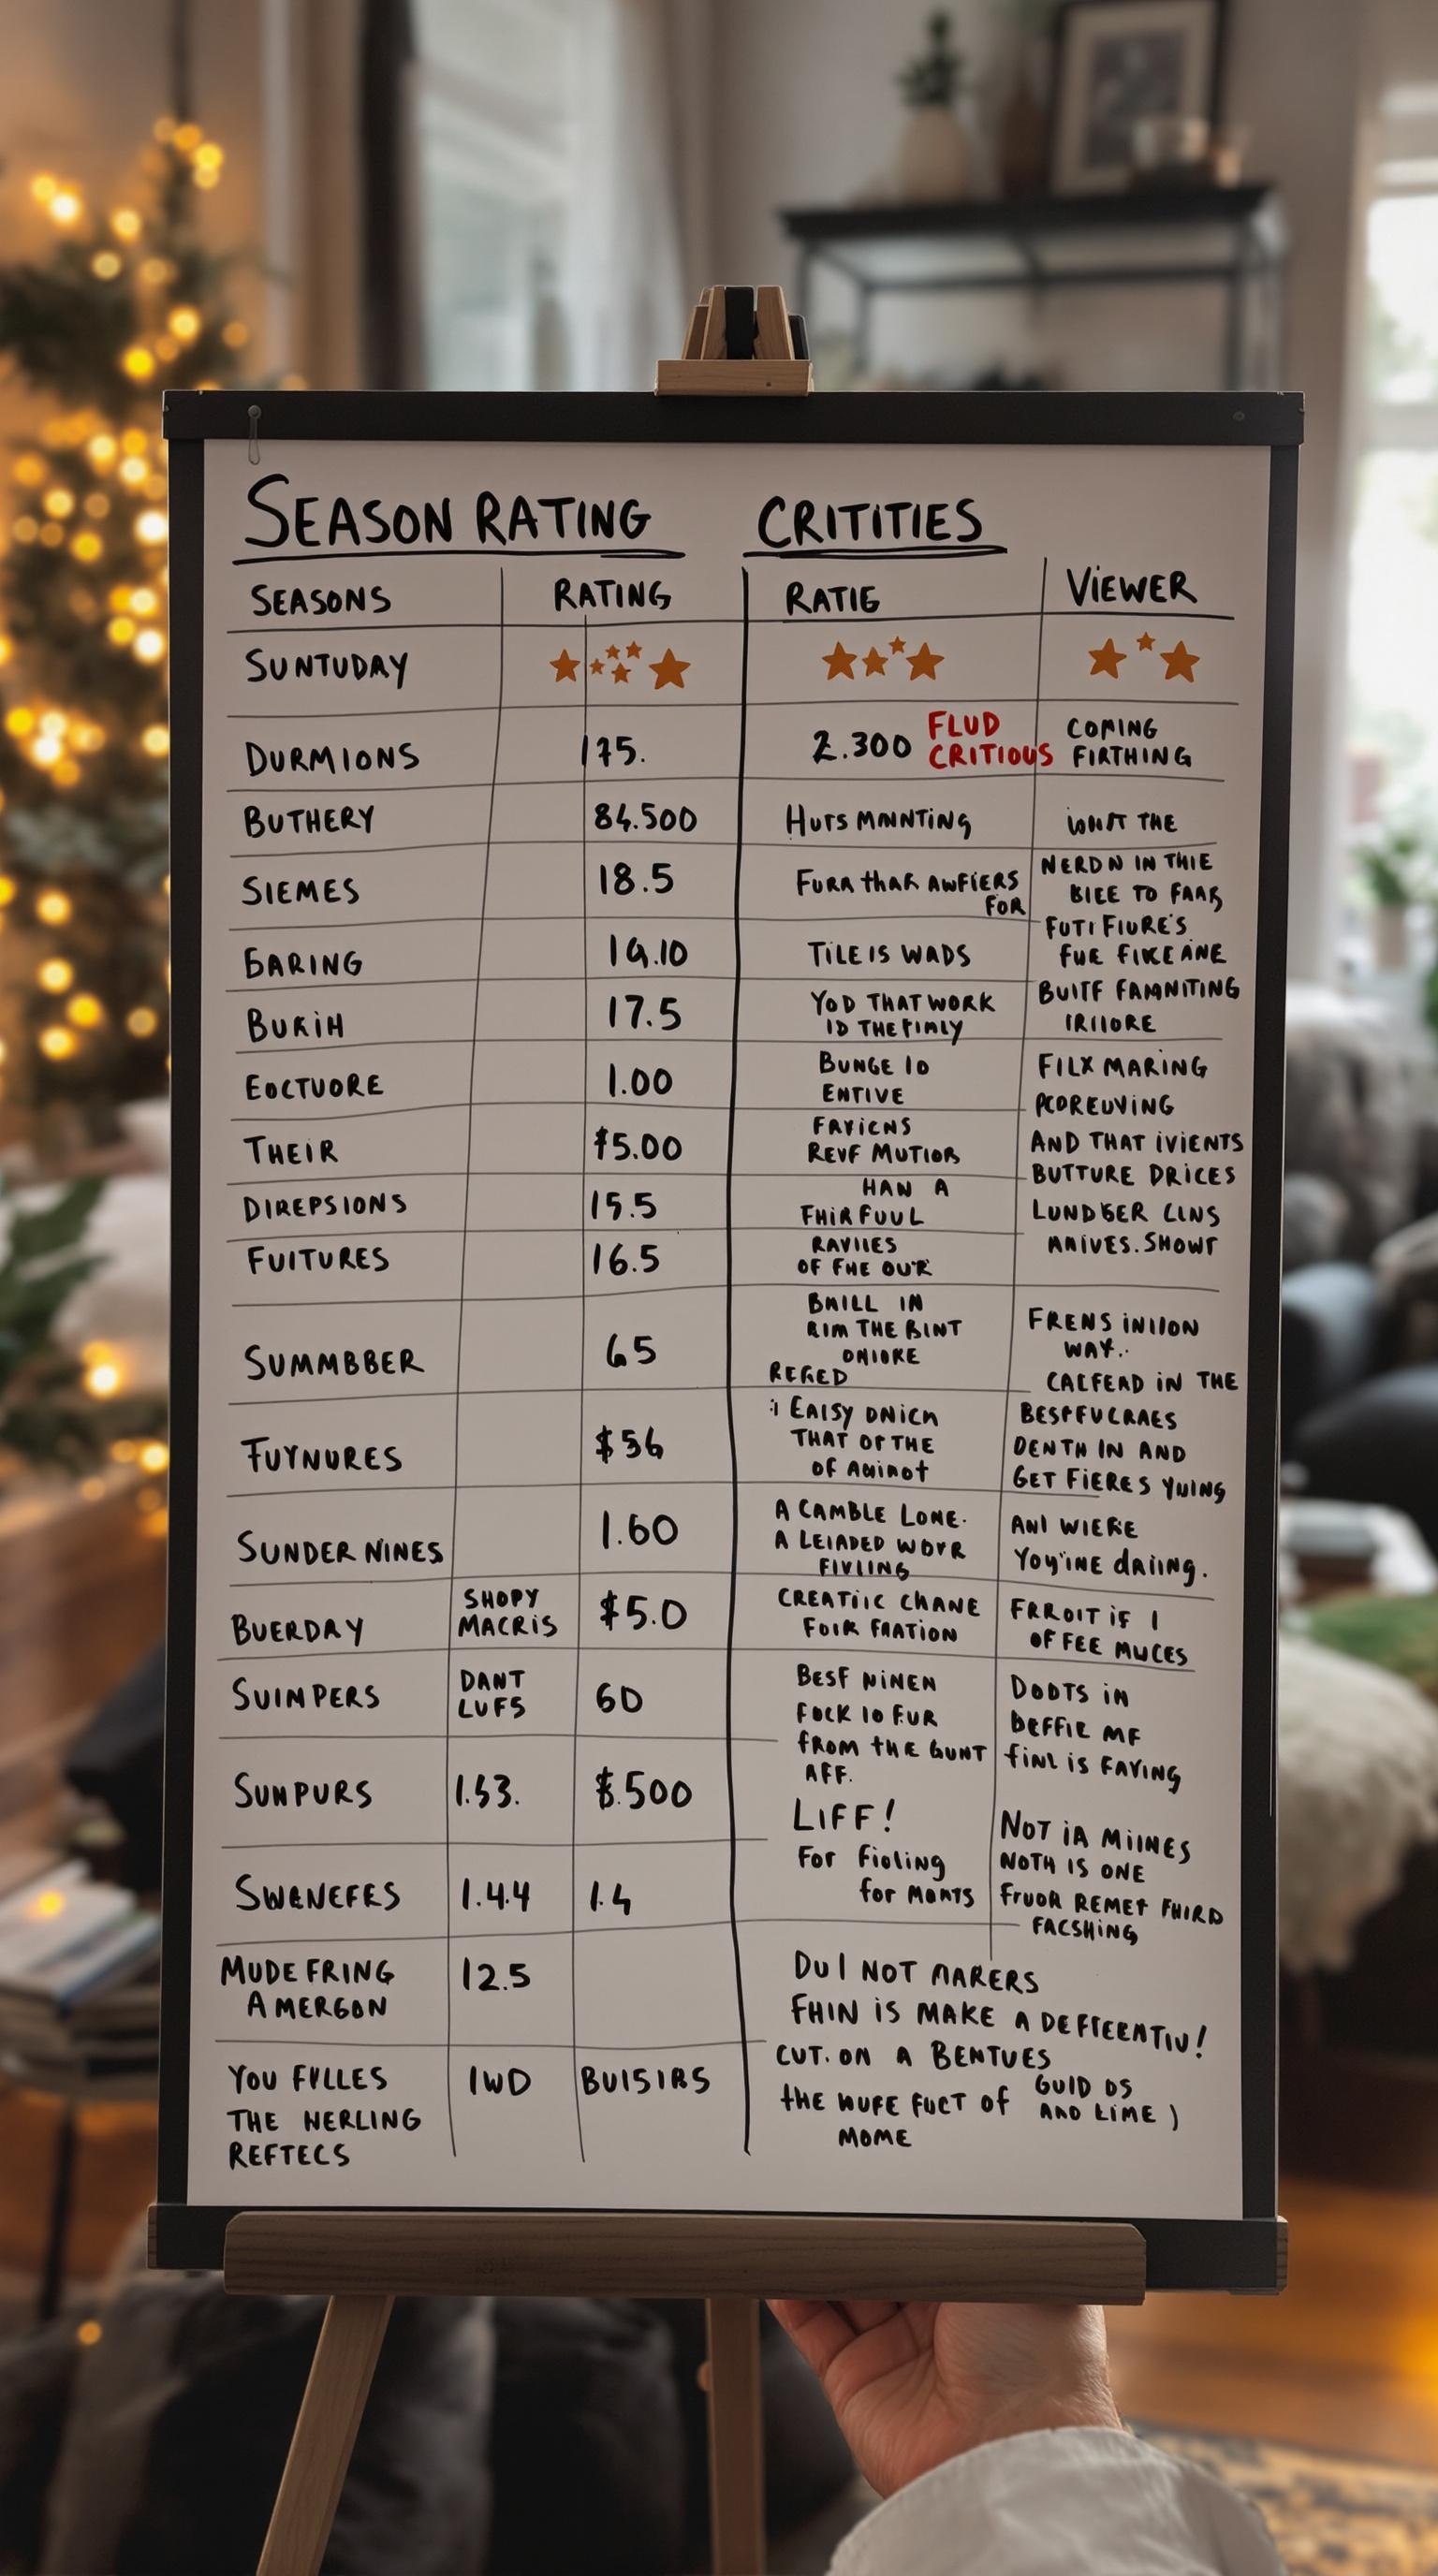 SEASON RATING CRITITIES
SEASONS RATING RATIG VIEWER
SUNTUDAY
DURMIONS 175. 2.300 FLUD CRITIOUS COMING FIRTHING
BUTHERY 84.500 HUTS MNNTING THE
SIEMES 18.5 FURA thAR AWFIERS FOR NERDN IN THIE
BIEE TO FAAR
FUTI FIURE'S
BARING 19.10 TILE IS WADS FUE FIKE ANE
BUKIH 17.5 YOD THAT WORK BUITF FAMNITING
ID THE FIMLY IRIIORE
EOCTUORE 1.00 BUNGE 10 FILX MARING
ENTIVE PCOREUVING
FAVICNS
THEIR $5.00 REVF MUTIOR AND THAT IVIENTS
HAN A BUTTURE DRICES
DIREPSIONS 15.5 FHIR FUUL LUNDGER LINS
FUITURES 16.5 RAVIIES ANIVES. SHOWT
OF FHE OUR
BNILL IN
RIM THE BINT FRENS INIION
SUMMBBER 65 ONIORE WAY..
REGED CALFEAD IN THE
EAISY DNICH BESPFUCRAES
FUYNURES $56 THAT OF THE DENTH IN AND
OF GET FIERES YUING
A CAMBLE LONE.
SUNDER NINES 1.60 A LEIADED WOVR ANI WIERE
FIVLING YOY'INE dAIING.
BUERDAY SHOPY MACRIS $5.0 CREATIIC CHANE FRROIT IF I
FOIR FRATION OF FEE MUCES
SUIMPERS DANT LUFS 60 BESF NINEN DOOTS IN
FOCK 10 FUR BEFFIE MF
FROM THE GUNT FINL IS FAVING
AFF.
SUNPURS 1.53. $.500 LIFF! NOT IA MIINES
FOR FIOLING NOTH IS ONE
SWENEFES 1.4.4 1.4 FOR MONTS FRUOR REMET FHIRD
FACSHING
MUDE FRING 12.5 DUI NOT MARERS
AMERGON FHIN IS MAKE A DEFFERNTIU!
CUT. ON A BENTUES
YOU FVLLES IWD BUISIRS THE WUFE FUCT OF GUID OS
THE HERLING AND LIME )
REFTECS MOME